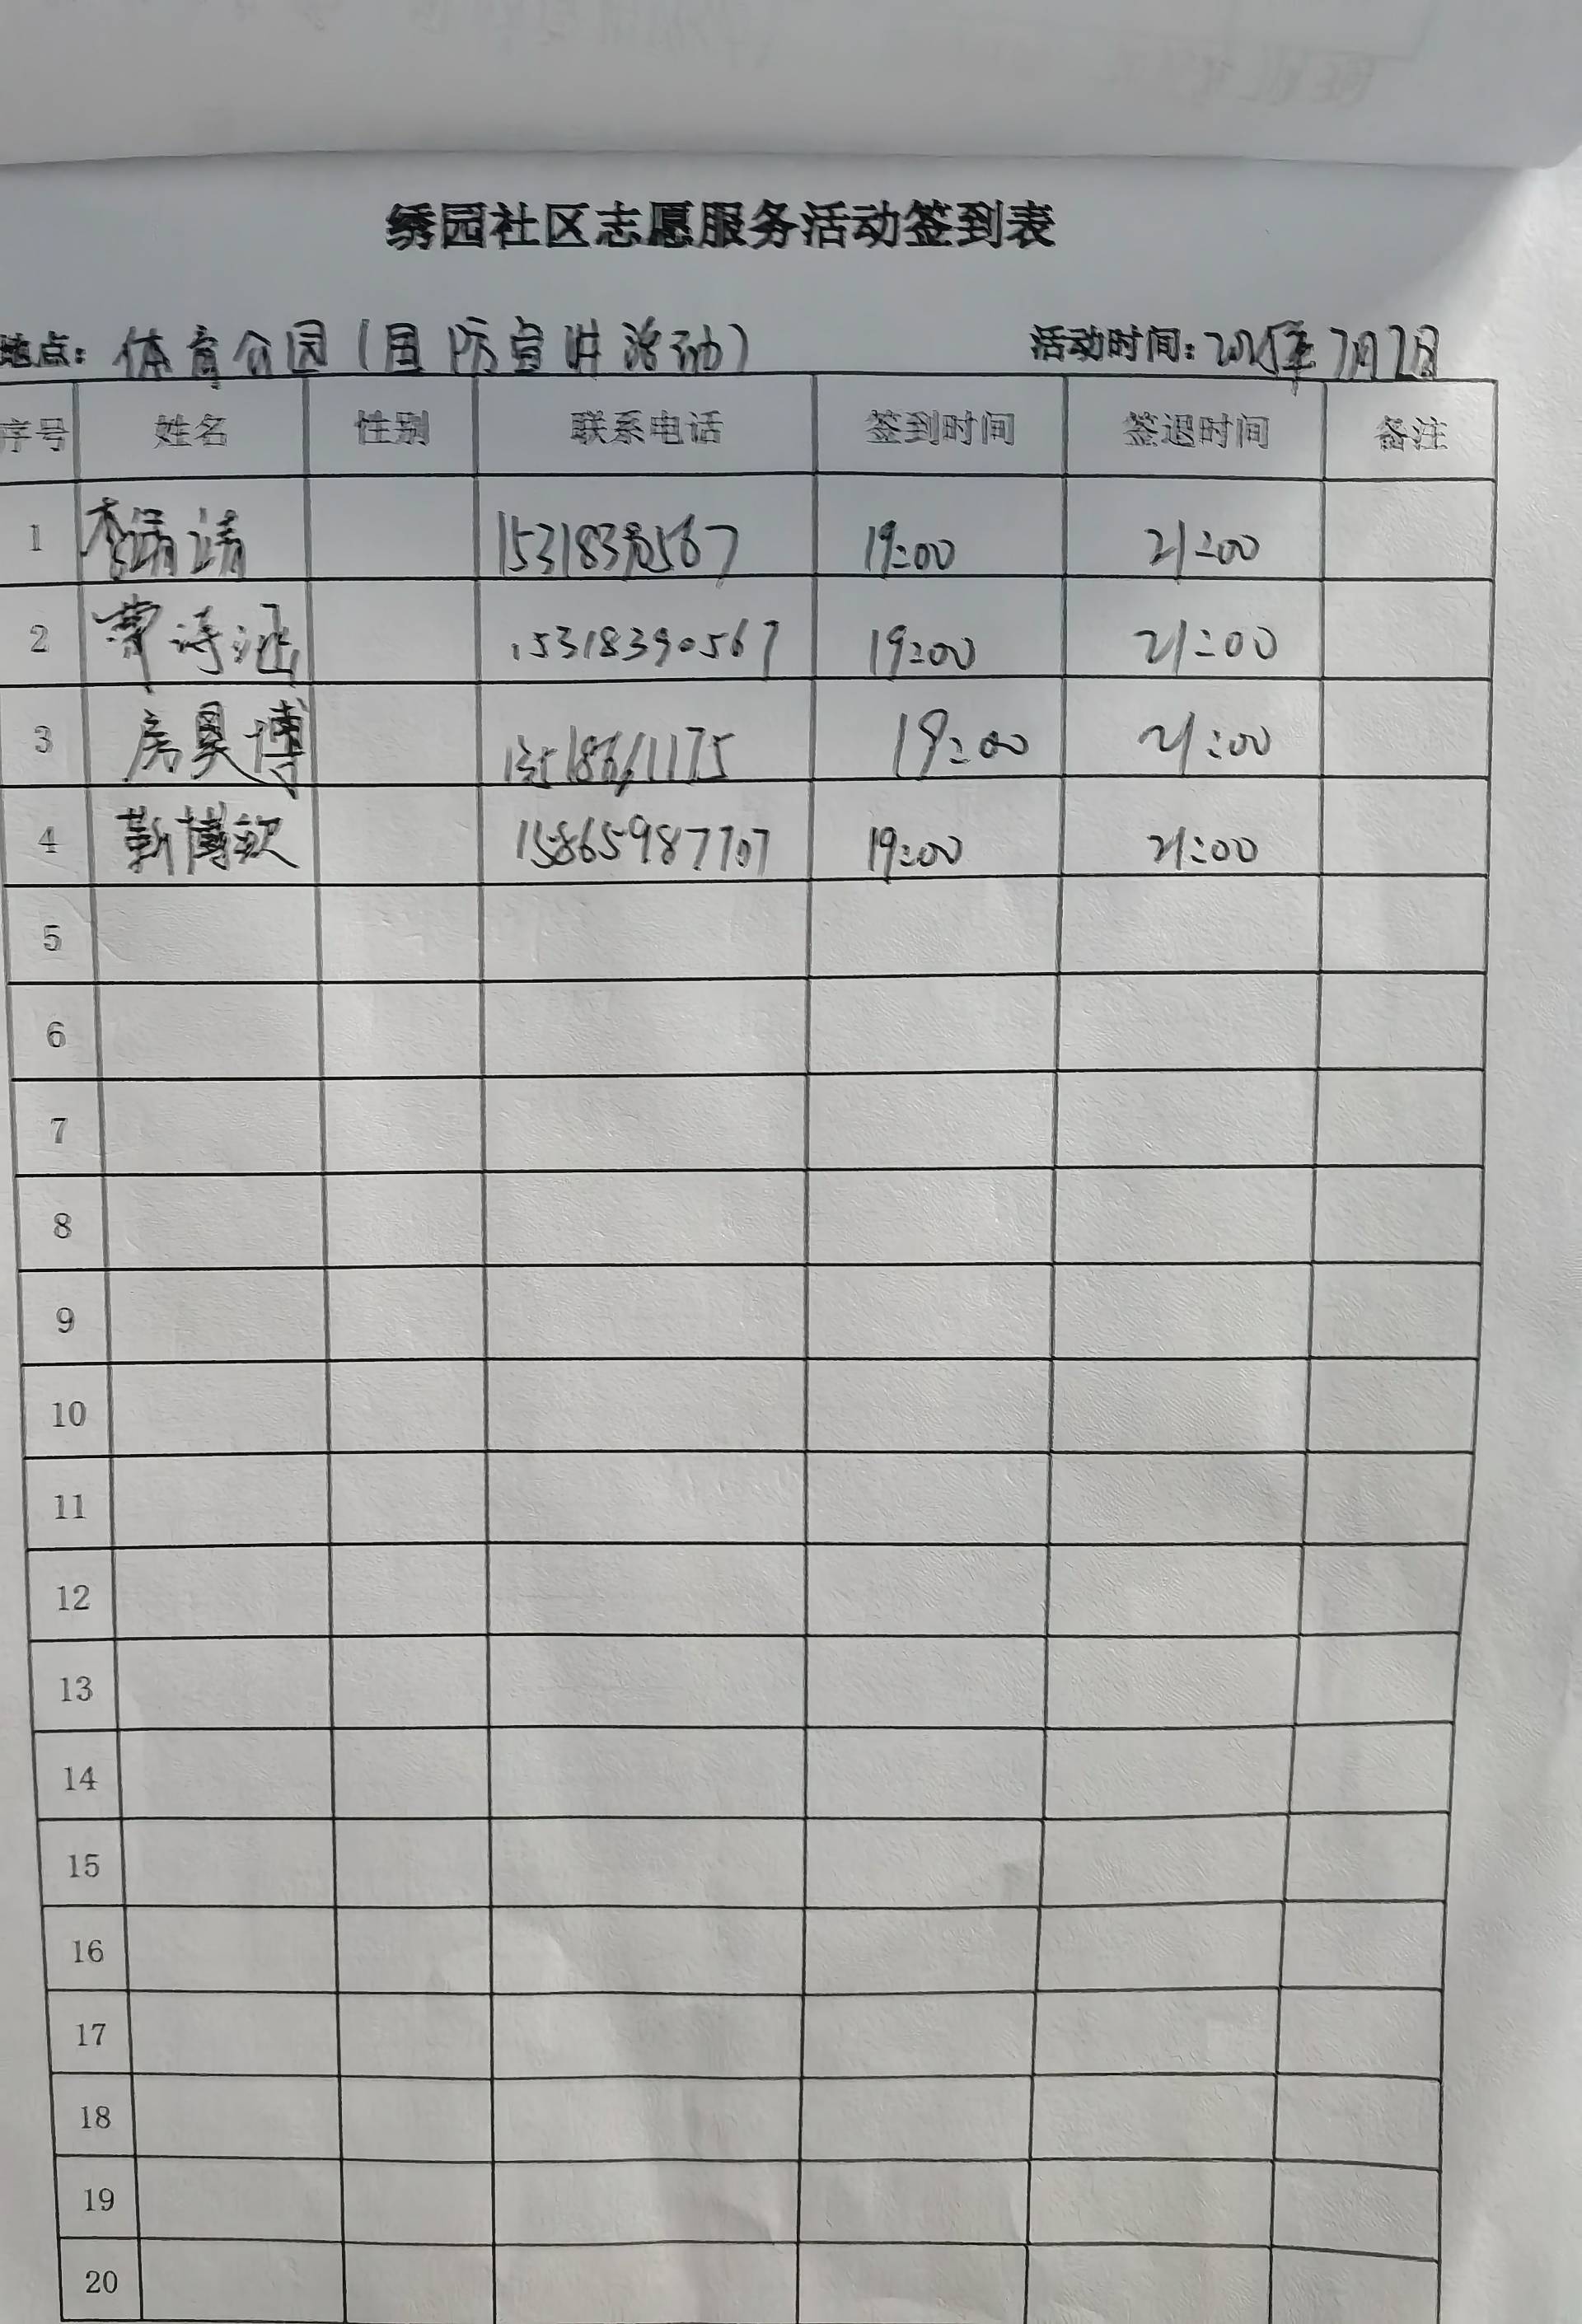 绣园社区志愿服务活动签到表
地点：体育公园（国防宣讲活动） 活动时间：2025年7月2日
序号 姓名 性别 联系电话 签到时间 签退时间 备注
1 李 19:00 21:00
2 曹诗涵 15318390567 19:00 21:00
3 房昊博 19:00 21:00
4 靳博钦 15865987707 19:00 21:00
5
6
7
8
9
10
11
12
13
14
15
16
17
18
19
20